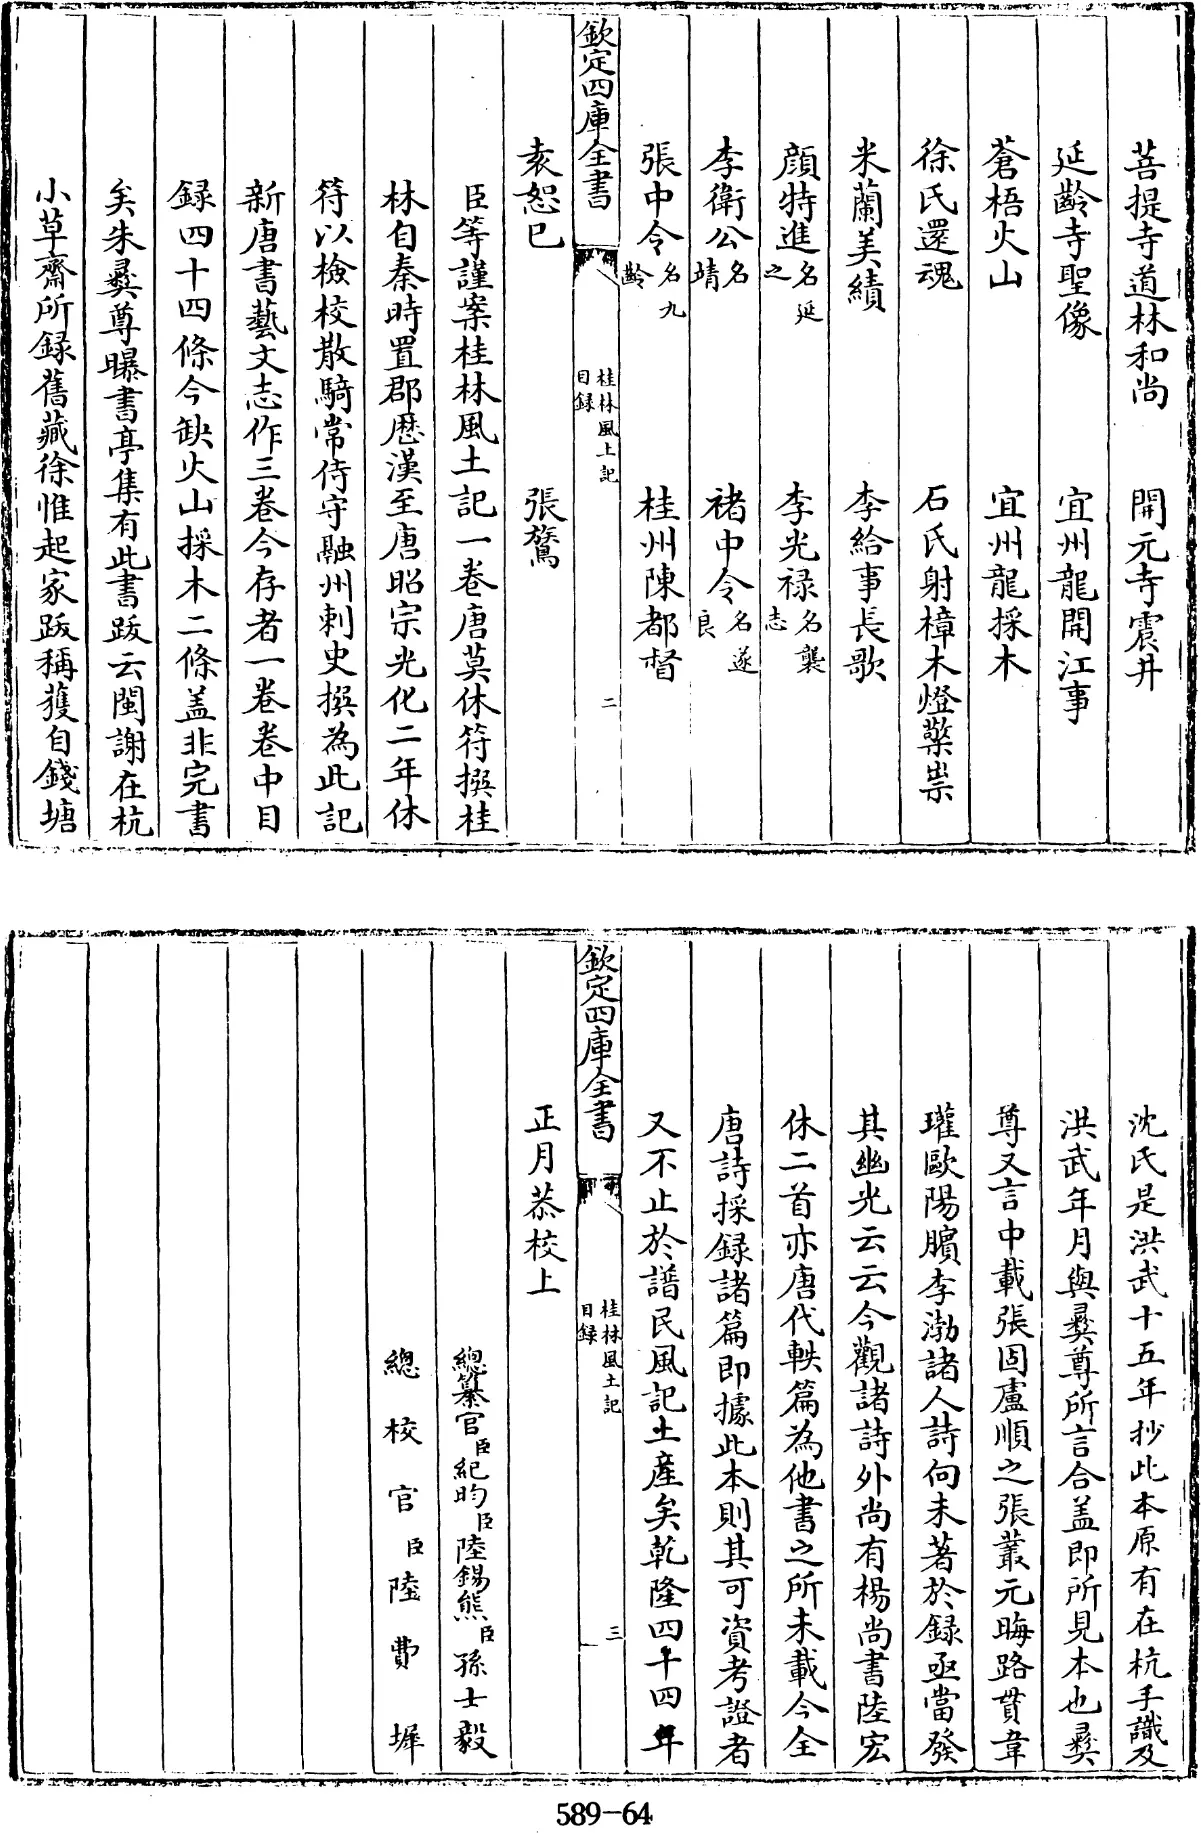 菩提寺道林和尚 開元寺震井
延齡寺聖像 宜州龍開江事
蒼梧火山 宜州龍採木
徐氏還魂 石氏射樟木燈檠祟
米蘭美績 李給事長歌
顔特進名延之 李光禄名襲志
李衛公名靖 褚中令名遂良
張中令名九齡 桂州陳都督
欽定四庫全書 桂林風土記目録 二
袁恕已 張鷟
臣等謹案桂林風土記一卷唐莫休符撰桂
林自秦時置郡歴漢至唐昭宗光化二年休
符以檢校散騎常侍守融州刺史撰為此記
新唐書藝文志作三卷今存者一卷卷中目
録四十四條今缺火山採木二條盖非完書
矣朱彝尊曝書亭集有此書跋云閩謝在杭
小草齋所録舊藏徐惟起家跋稱獲自錢塘
沈氏是洪武十五年抄此本原有在杭手識及
洪武年月與彝尊所言合盖即所見本也彝
尊又言中載張固盧順之張叢元晦路貫韋
瓘歐陽臏李渤諸人詩向未著於録亟當發
其幽光云云今觀諸詩外尚有楊尚書陸宏
休二首亦唐代軼篇為他書之所未載今全
唐詩採録諸篇即據此本則其可資考證者
又不止於譜民風記土産矣乾隆四十四年
欽定四庫全書 桂林風土記目録 三
正月恭校上
總纂官臣紀昀臣陸錫熊臣孫士毅
總校官臣陸費墀
589-64